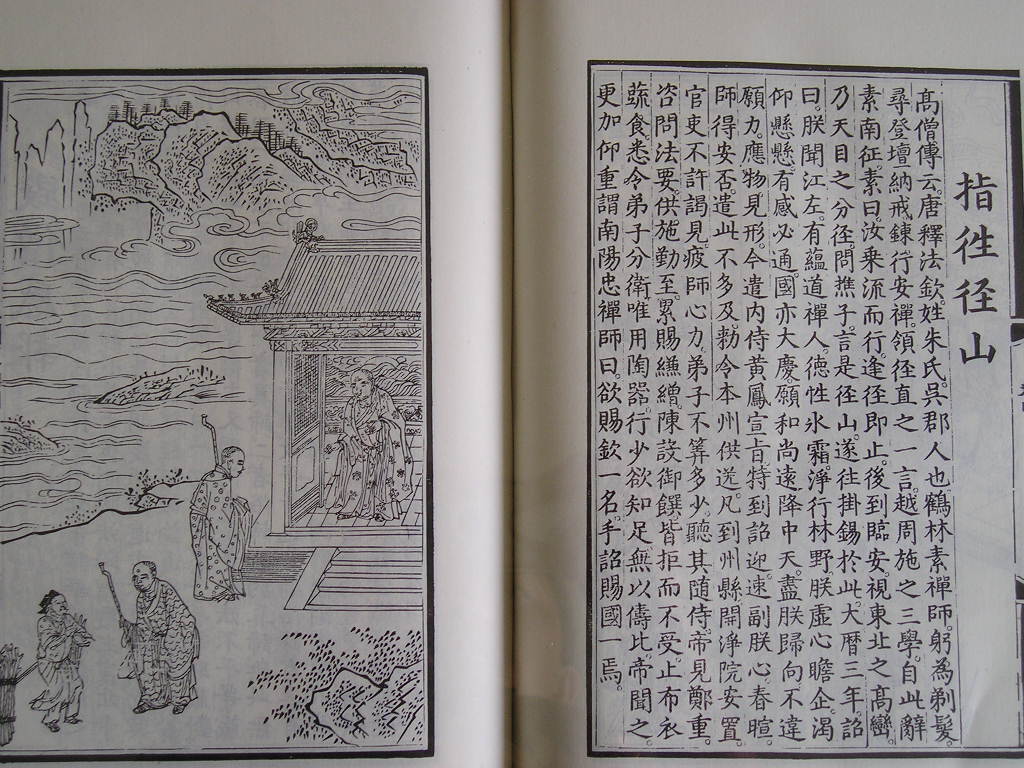 指徃径山
高僧傳云。唐釋法欽。姓朱氏。吳郡人也。鶴林素禪師。躬為剃髮。
尋登壇納戒。鍊行安禪。領徑直之一言。越周施之三學。自此辭
素南征。素曰。汝乗流而行。逢徑即止。後到臨安。視東北之高巒
乃天目之分徑。問樵子。言是径山。遂往掛錫於此。大曆三年詔
曰。朕聞江左有蘊道禪人。德性氷霜。淨行林野。朕虛心瞻企。渴
仰懸懸。有感必通。國亦大慶。願和尚遠降中天。盡朕歸向。不違
願力。應物見形。今遣内侍黃鳳宣旨。特到詔迎。速副朕心。春暄
師得安否。遣此不多及。勅令本州供送。凡到州縣。開淨院安置
官吏不許謁見。疲師心力。弟子不筭多少。聽其隨侍。帝見鄭重。
咨問法要。供施勤至。累賜縑繒。陳設御饌。皆拒而不受。止布衣
蔬食。悉令弟子分衛。唯用陶器。行少欲知足。無以儔比。帝聞之。
更加仰重。謂南陽忠禪師曰。欲賜欽一名。手詔賜國一焉。